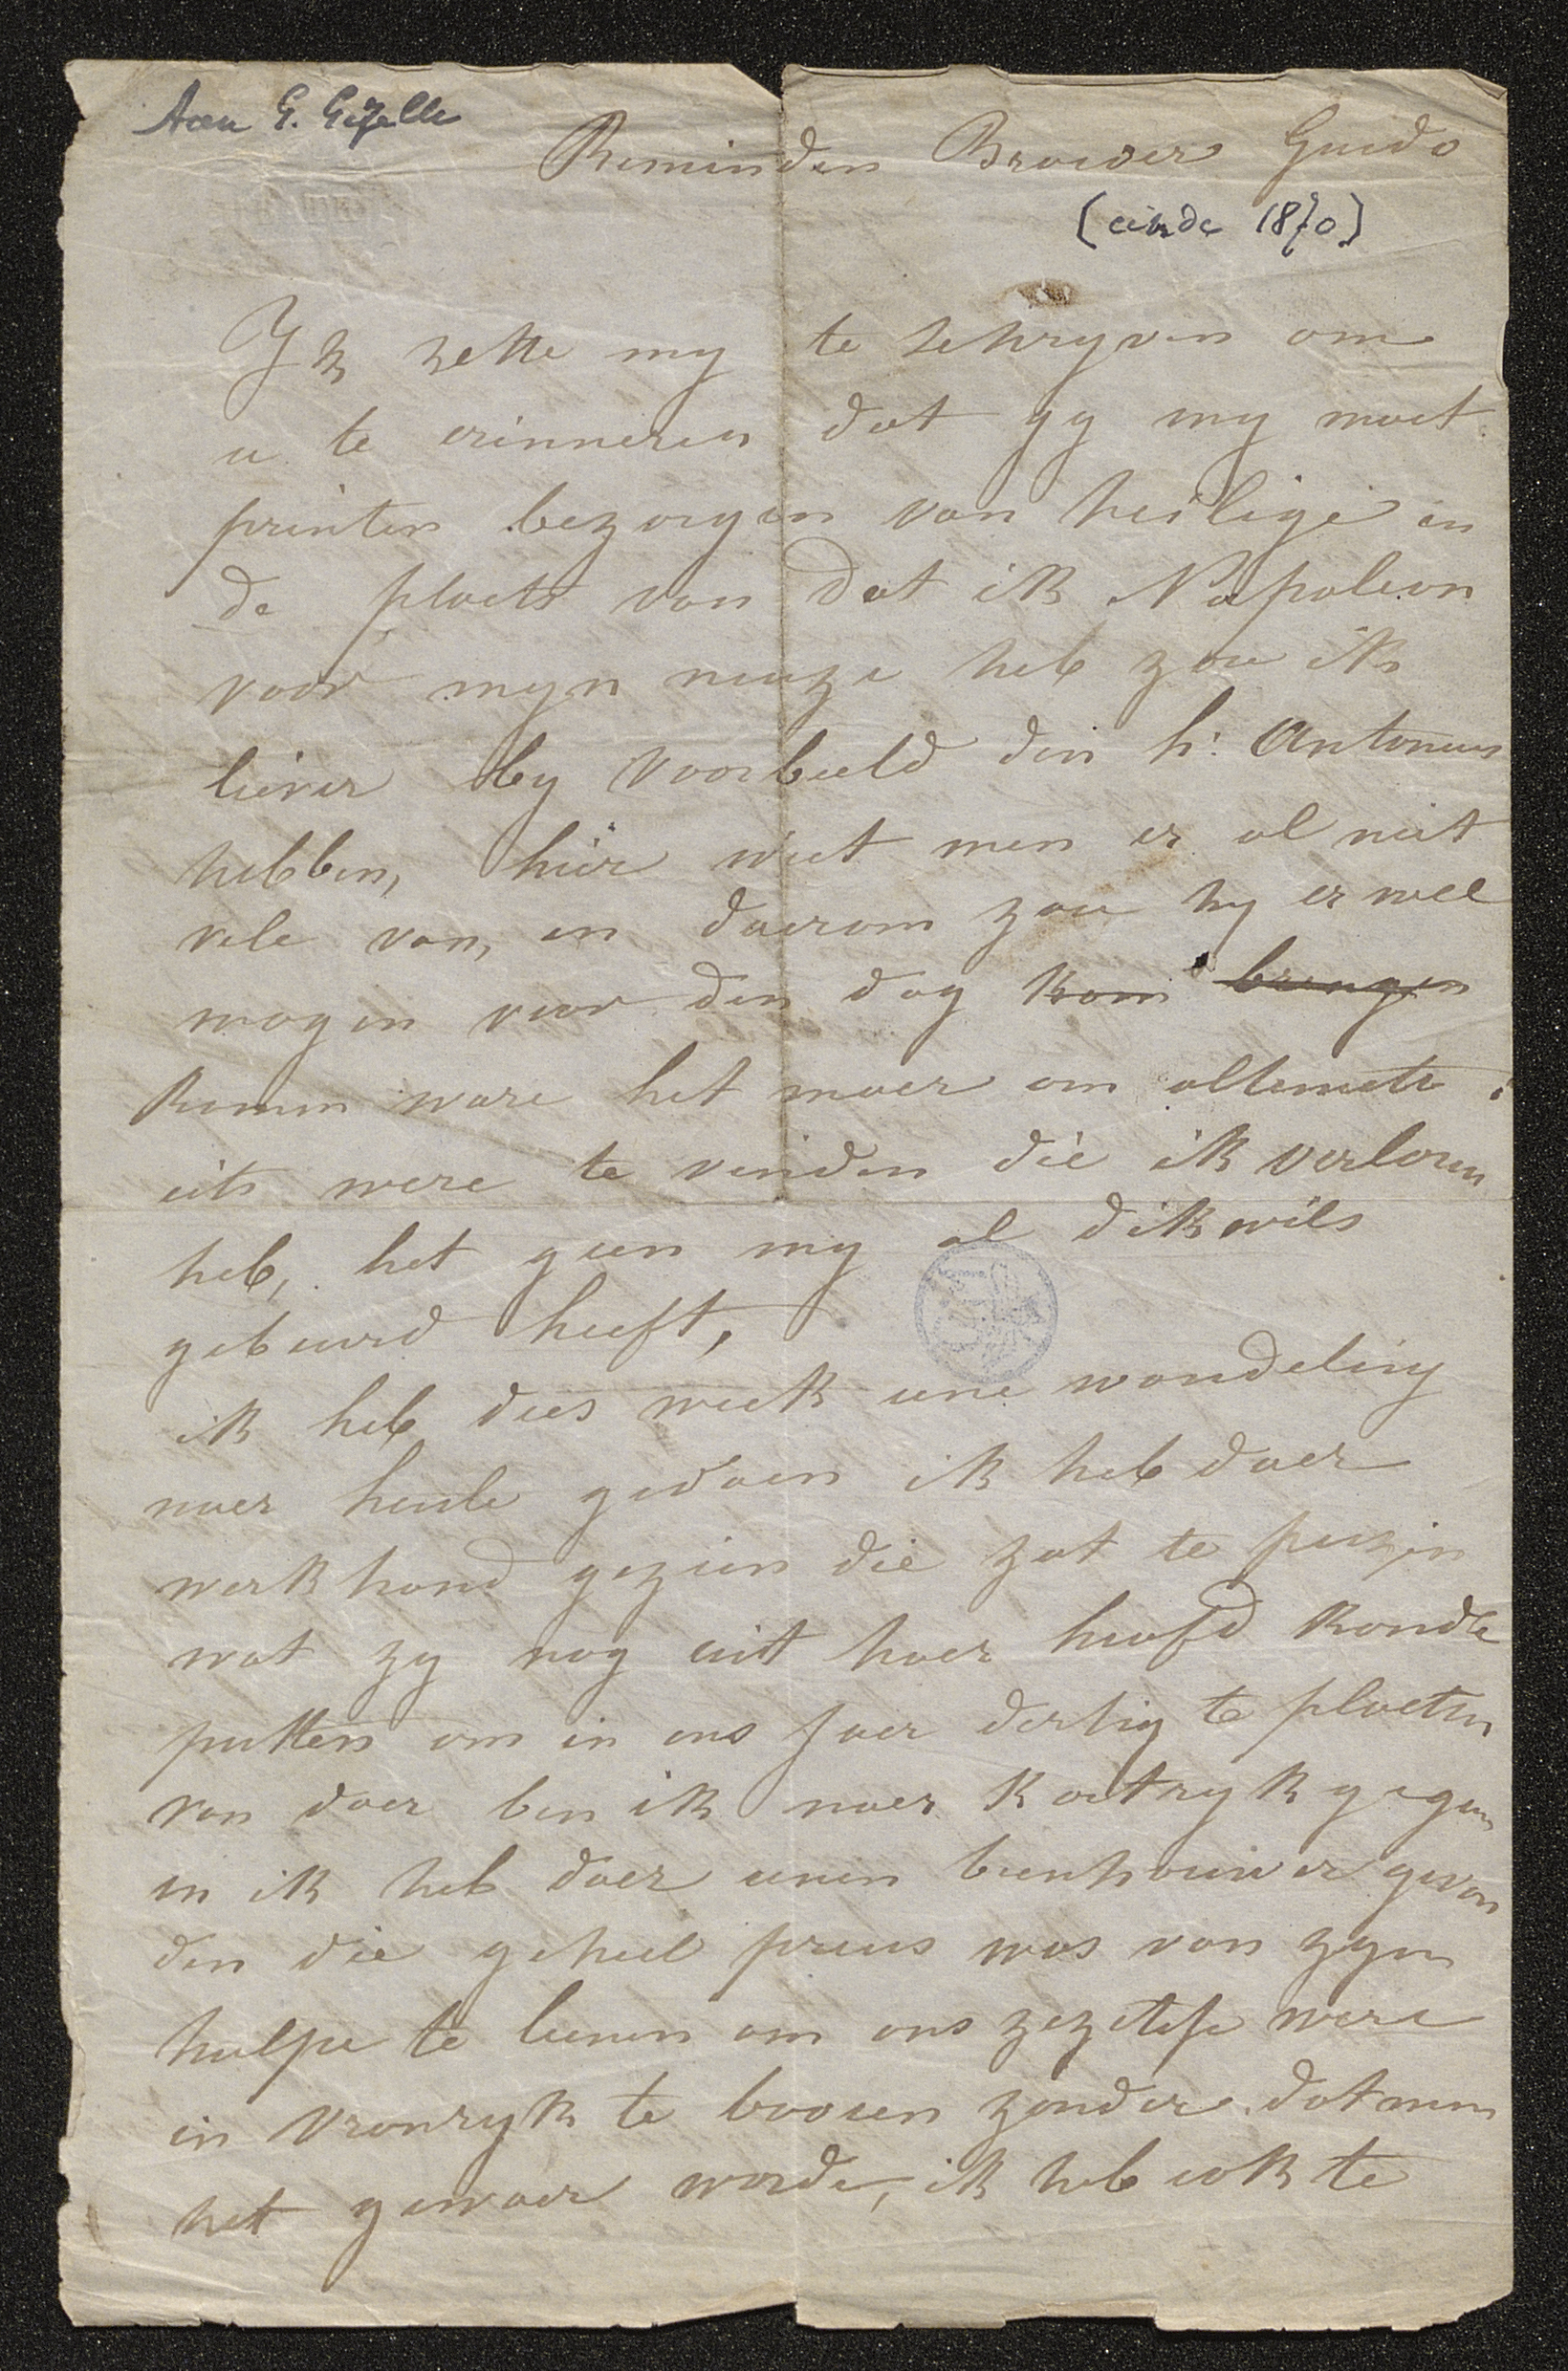 Aan G. Gezelle
Beminden Broeder Guido
(einde 1870)
Ik zette my te schryven om
u te erinneren dat gy my moet
printen bezorgen van heilige in
de plaets van dat ik Napoleon
voor myn neuze heb zou ik
liever by voorbeeld den h. Antonius
hebben, hier weet men er al niet
vele van, en daerom zou hy er wel
mogen voor den dag kom brengen
komen ware het maer om altemets
iets were te vinden die ik verloren
heb, het geen my al dikwils
gebeurd heeft,
ik heb dees week eene wandeling
naer heule gedaen ik heb daer
werk hand gezien die zat te peizen
wat zy nog uit haer hoofd konde
putten om in ons jaer dertig te plaetsen
van daer ben ik naer Kortryk gegaen
en ik heb daer eenen beenhouwer gevon
den die geheel preus was van zyn
hulpe te leenen om ons were
in vrankryk te bouwen zonder dat men
het gewaer worde, ik heb ook te